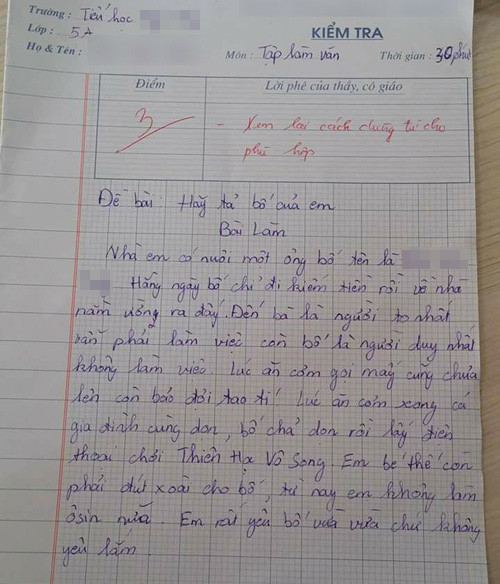 Trường: Tiểu học
Lớp: 5A
Họ & Tên:
KIỂM TRA
Môn: Tập làm văn Thời gian: 30 phút
Điểm
Lời phê của thầy, cô giáo
3
- Xem lại cách dùng từ cho
phù hợp
Đề bài: Hãy tả bố của em
Bài Làm
Nhà em có nuôi một ông bố tên là
Hằng ngày bố chỉ đi kiếm tiền rồi về nhà
nằm ưỡng ra đấy. Đến bà là người to nhất
vẫn phải làm việc còn bố là người duy nhất
không làm việc. Lúc ăn cơm gọi mãi cũng chưa
lên còn bảo đợi tao tí. Lúc ăn cơm xong cả
gia đình cùng dọn, bố chả dọn rồi lấy điện
thoại chơi Thiên Hạ Vô Song. Em bé thế còn
phải đút xoài cho bố, từ nay em không làm
ôsin nữa. Em rất yêu bố vừa vừa chứ không
yêu lắm.